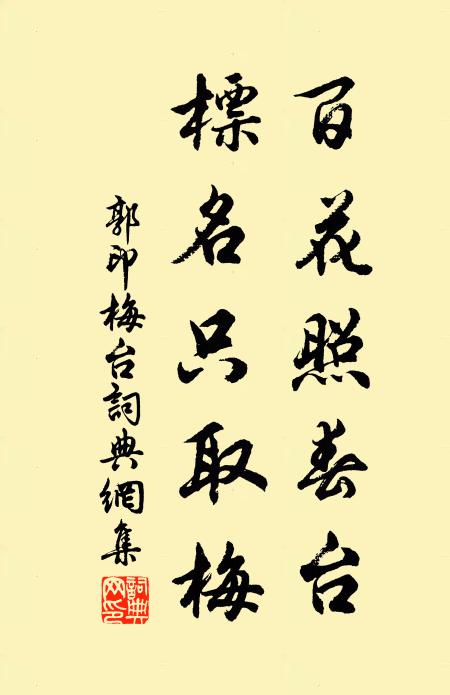 百花照春台
標名只取梅
郭印梅台詞典網集
詞典网印